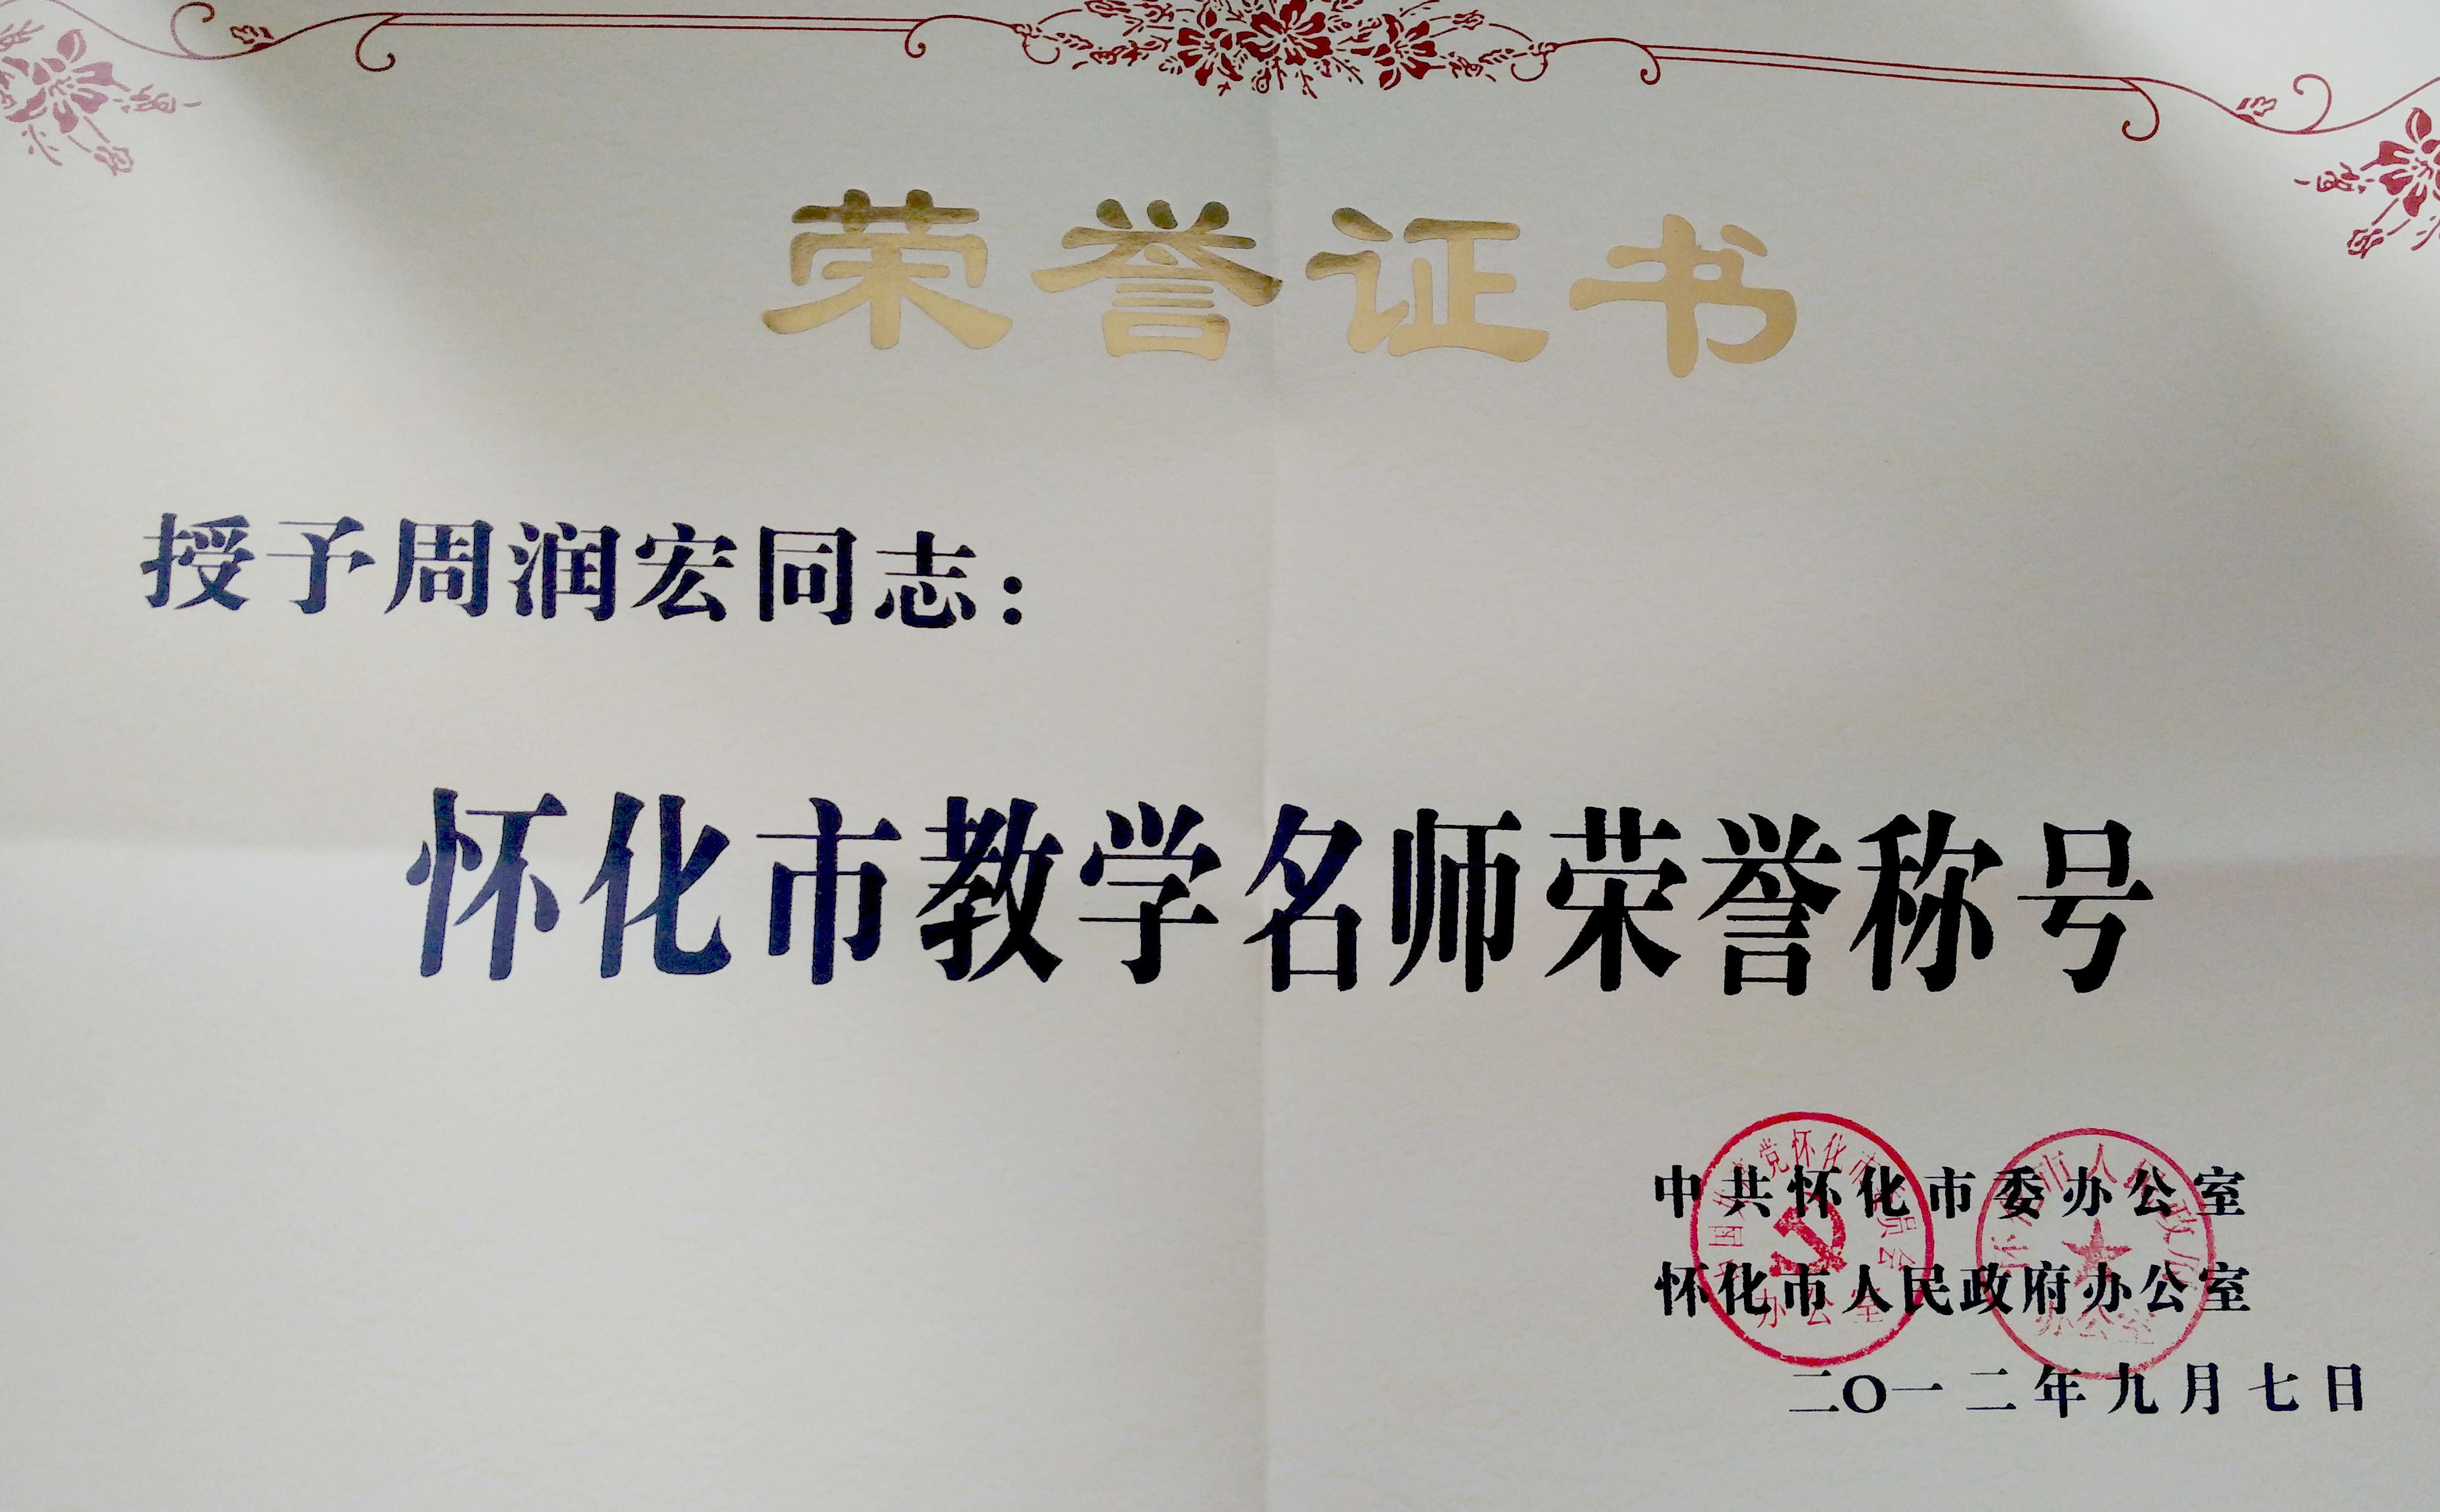 荣誉证书
授予周润宏同志：
怀化市教学名师荣誉称号
中共怀化市委办公室
怀化市人民政府办公室
二〇一二年九月七日
办公室
办公室